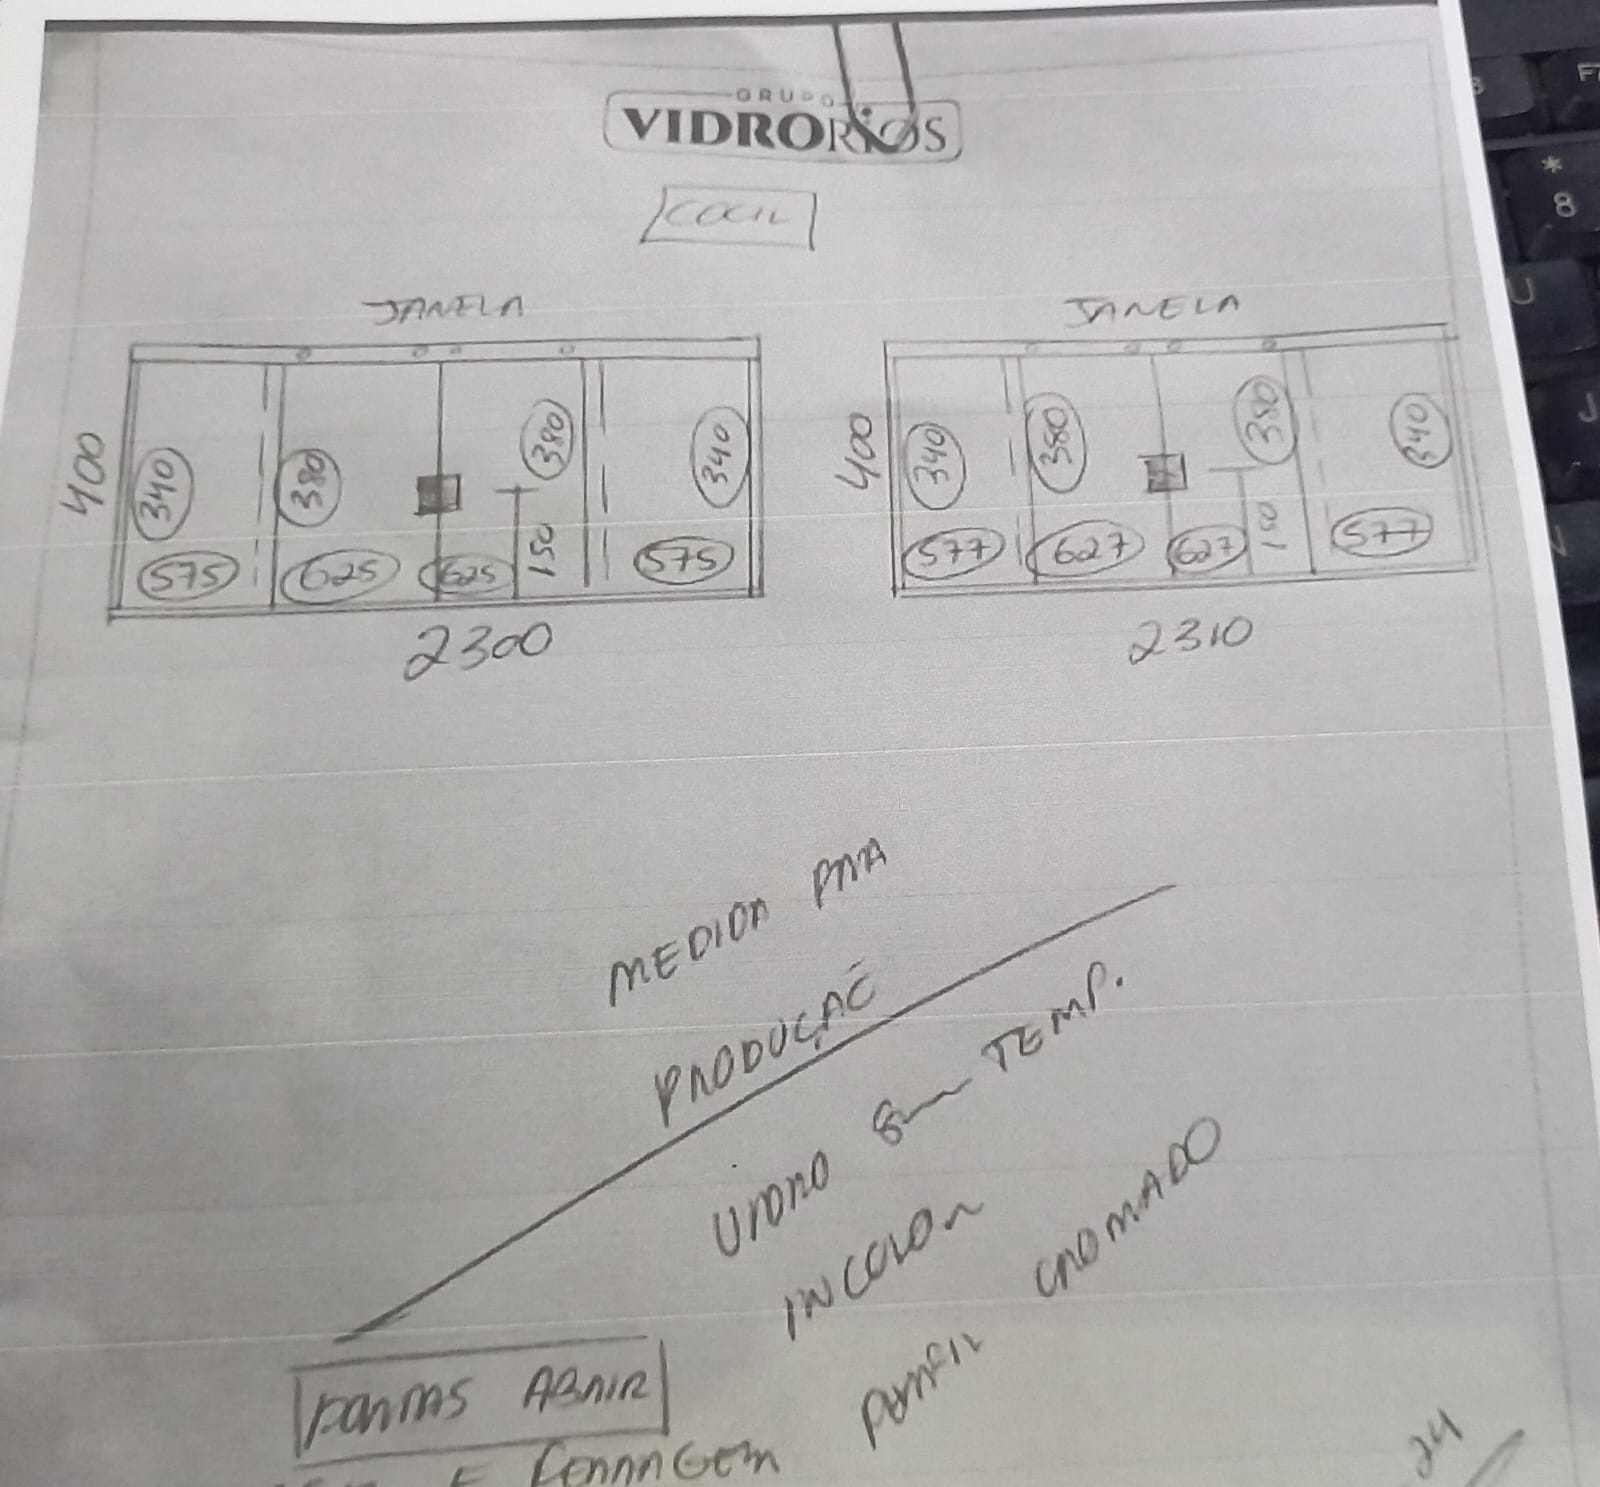 GRUPO
VIDRORIOS
COCIL
JANELA
400
340
380
380
340
575
625
625
150
575
2300
JANELA
400
340
380
380
340
577
627
627
150
577
2310
MEDIDA PARA
PRODUÇÃO
VIDRO 8mm TEMP.
INCOLOR
PERFIL CROMADO
PORTAS ABRIR
E FERRAGEM
24
F7
*
8
U
J